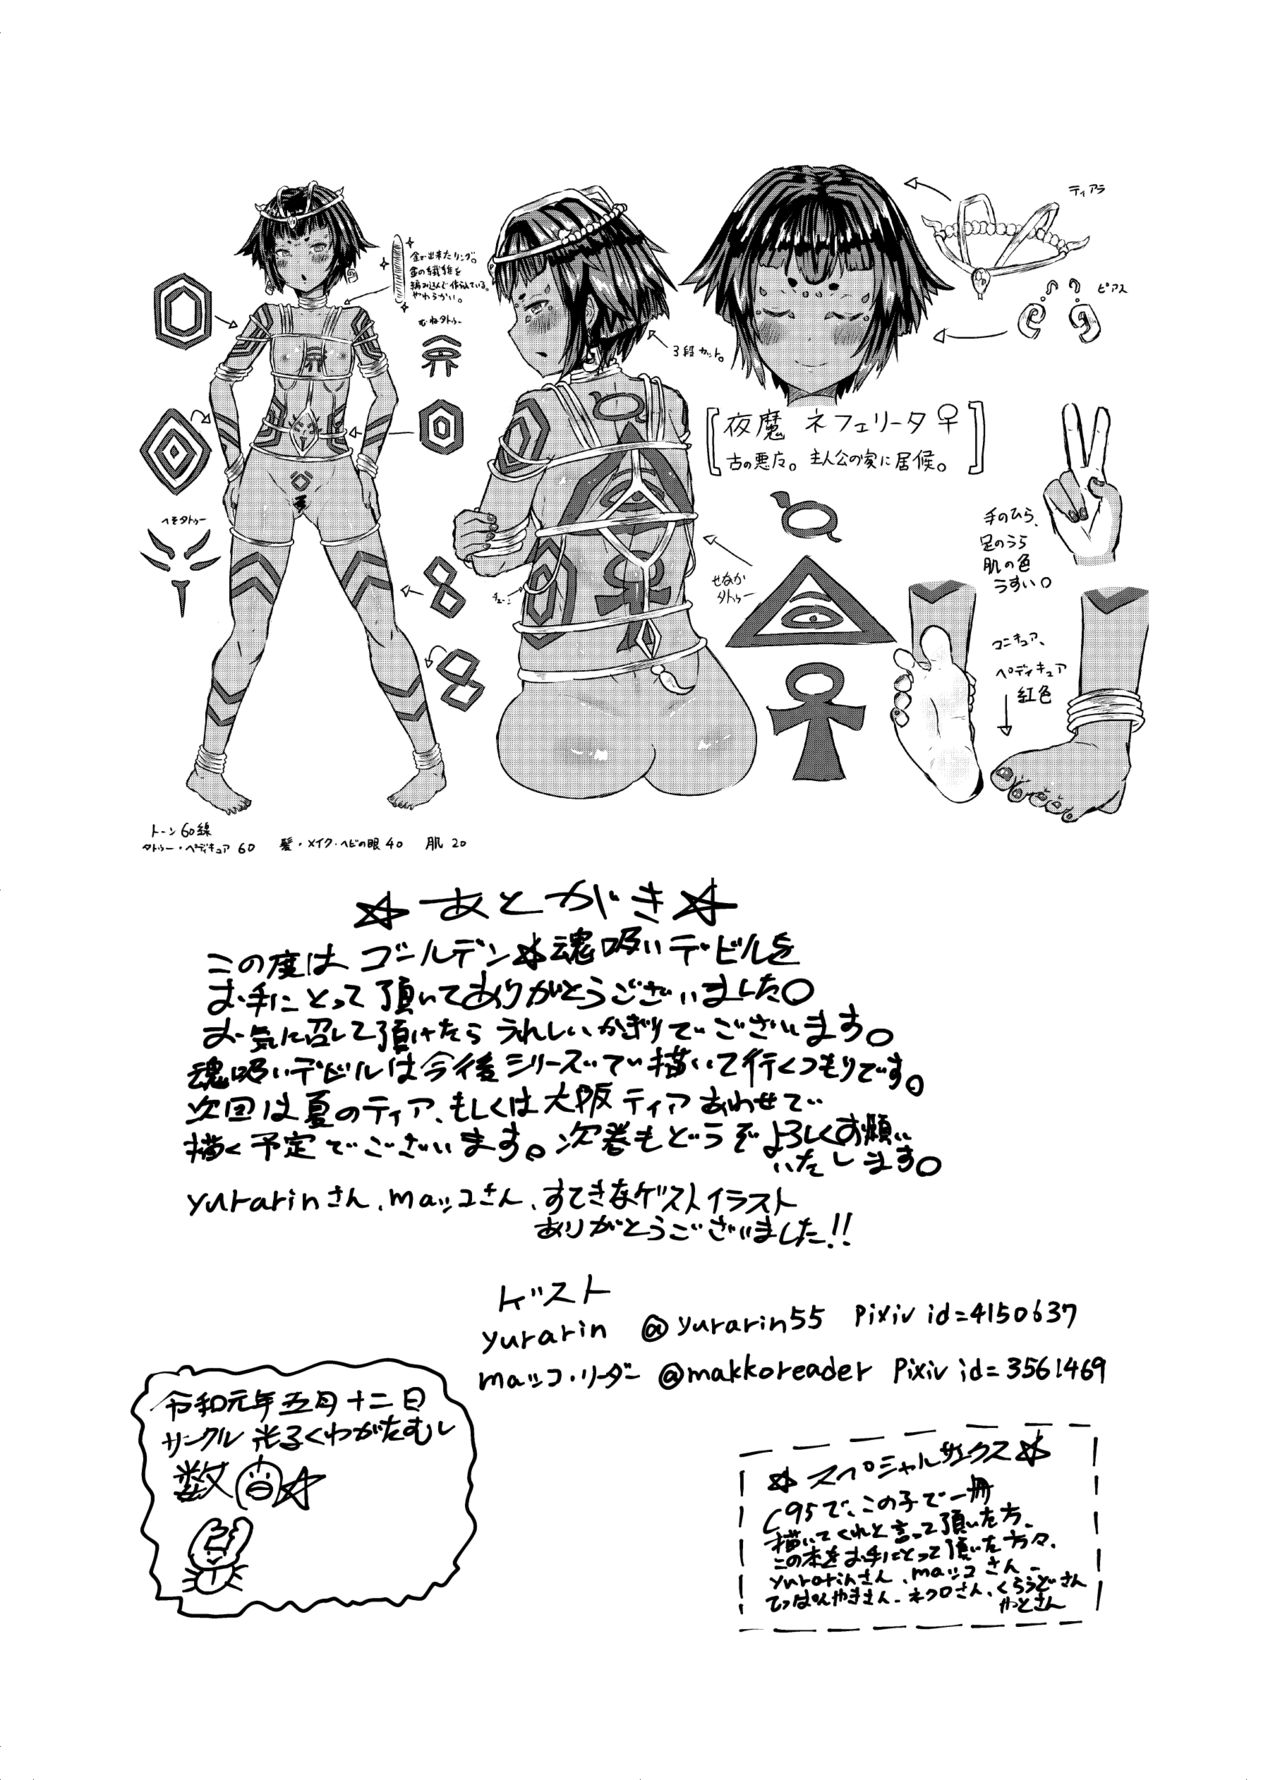 ティアラ
金で出来たリング。
編み込んで作られている。
やわらかい。
むねタトゥー
ピアス
3段カット。
夜魔 ネフェリータ♀
古の悪魔。主人公の家に居候。
へそタトゥー
手のひら、
足のうら
肌の色
うすい。
せなか
タトゥー
マニキュア、
ペディキュア
紅色
トーン60線
タトゥー・ペディキュア 60 髪・メイク・ヘビの眼 40 肌 20
☆あとがき☆
この度は ゴールデン☆魂吸いデビルを
お手にとって頂いてありがとうございました。
お気に召して頂けたら うれしいかぎりでございます。
魂吸いデビルは今後シリーズで描いて行くつもりです。
次回は夏のティア、もしくは大阪ティアあわせで
描く予定でございます。次巻もどうぞよろしくお願い
いたします。
yurarinさん、mαッコさん、すてきなゲストイラスト
ありがとうございました!!
ゲスト
yurarin @yurarin55 Pixiv id=4150637
mαッコ・リーダー @makkoreader Pixiv id=3561469
令和元年五月十二日
サークル 光子くわがたむし
数
☆スペシャルサンクス☆
C95で、この子で一冊
描いてくれと言って頂いた方、
この本をお手にとって頂いた方々、
yurarinさん、mαッコさん、
てっぱんやきさん、ネクロさん、くらうどさん
やとさん